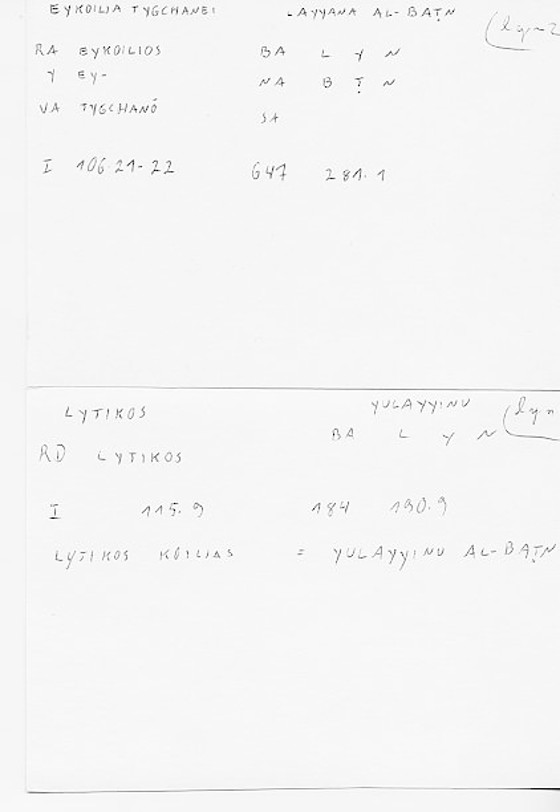 EYKOILIA TYGCHANEI LAYYANA AL-BAṬN
RA EYKOILIOS BA L Y N
Y EY- NA B Ṭ N
VA TYGCHANŌ SA
I 106.21-22 647 281.1
LYTIKOS YULAYYINU (lyn
BA L Y N
RD LYTIKOS
I 115.9 184 190.9
LYTIKOS KOILIAS = YULAYYINU AL-BAṬN